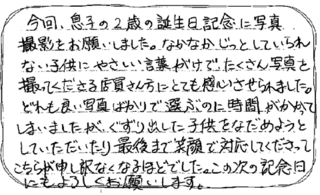 今回、息子の2歳の誕生日記念に写真
撮影をお願いしました。なかなかじっとしていられ
ない子供にやさしい言葉がけで、たくさん写真を
撮ってくださる店員さん方にとても感心させられました。
どれも良い写真ばかりで選ぶのに時間がかかって
しまいましたが、ぐずり出した子供をなだめようと
していただいたり、最後まで笑顔で対応してくださって
こちらが申し訳なくなるほどでした。この次の記念日
にもよろしくお願いします。